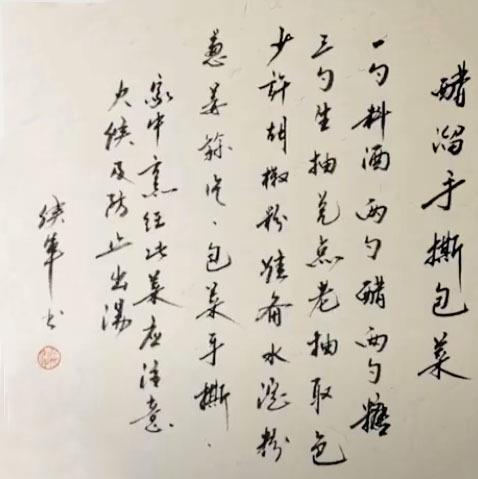 醋溜手撕包菜
一勺料酒两勺醋两勺糖
三勺生抽兑点老抽取色
少许胡椒粉准备水淀粉
葱姜蒜片、包菜手撕.
家中烹饪此菜应注意
火候及防止出汤
侯军书